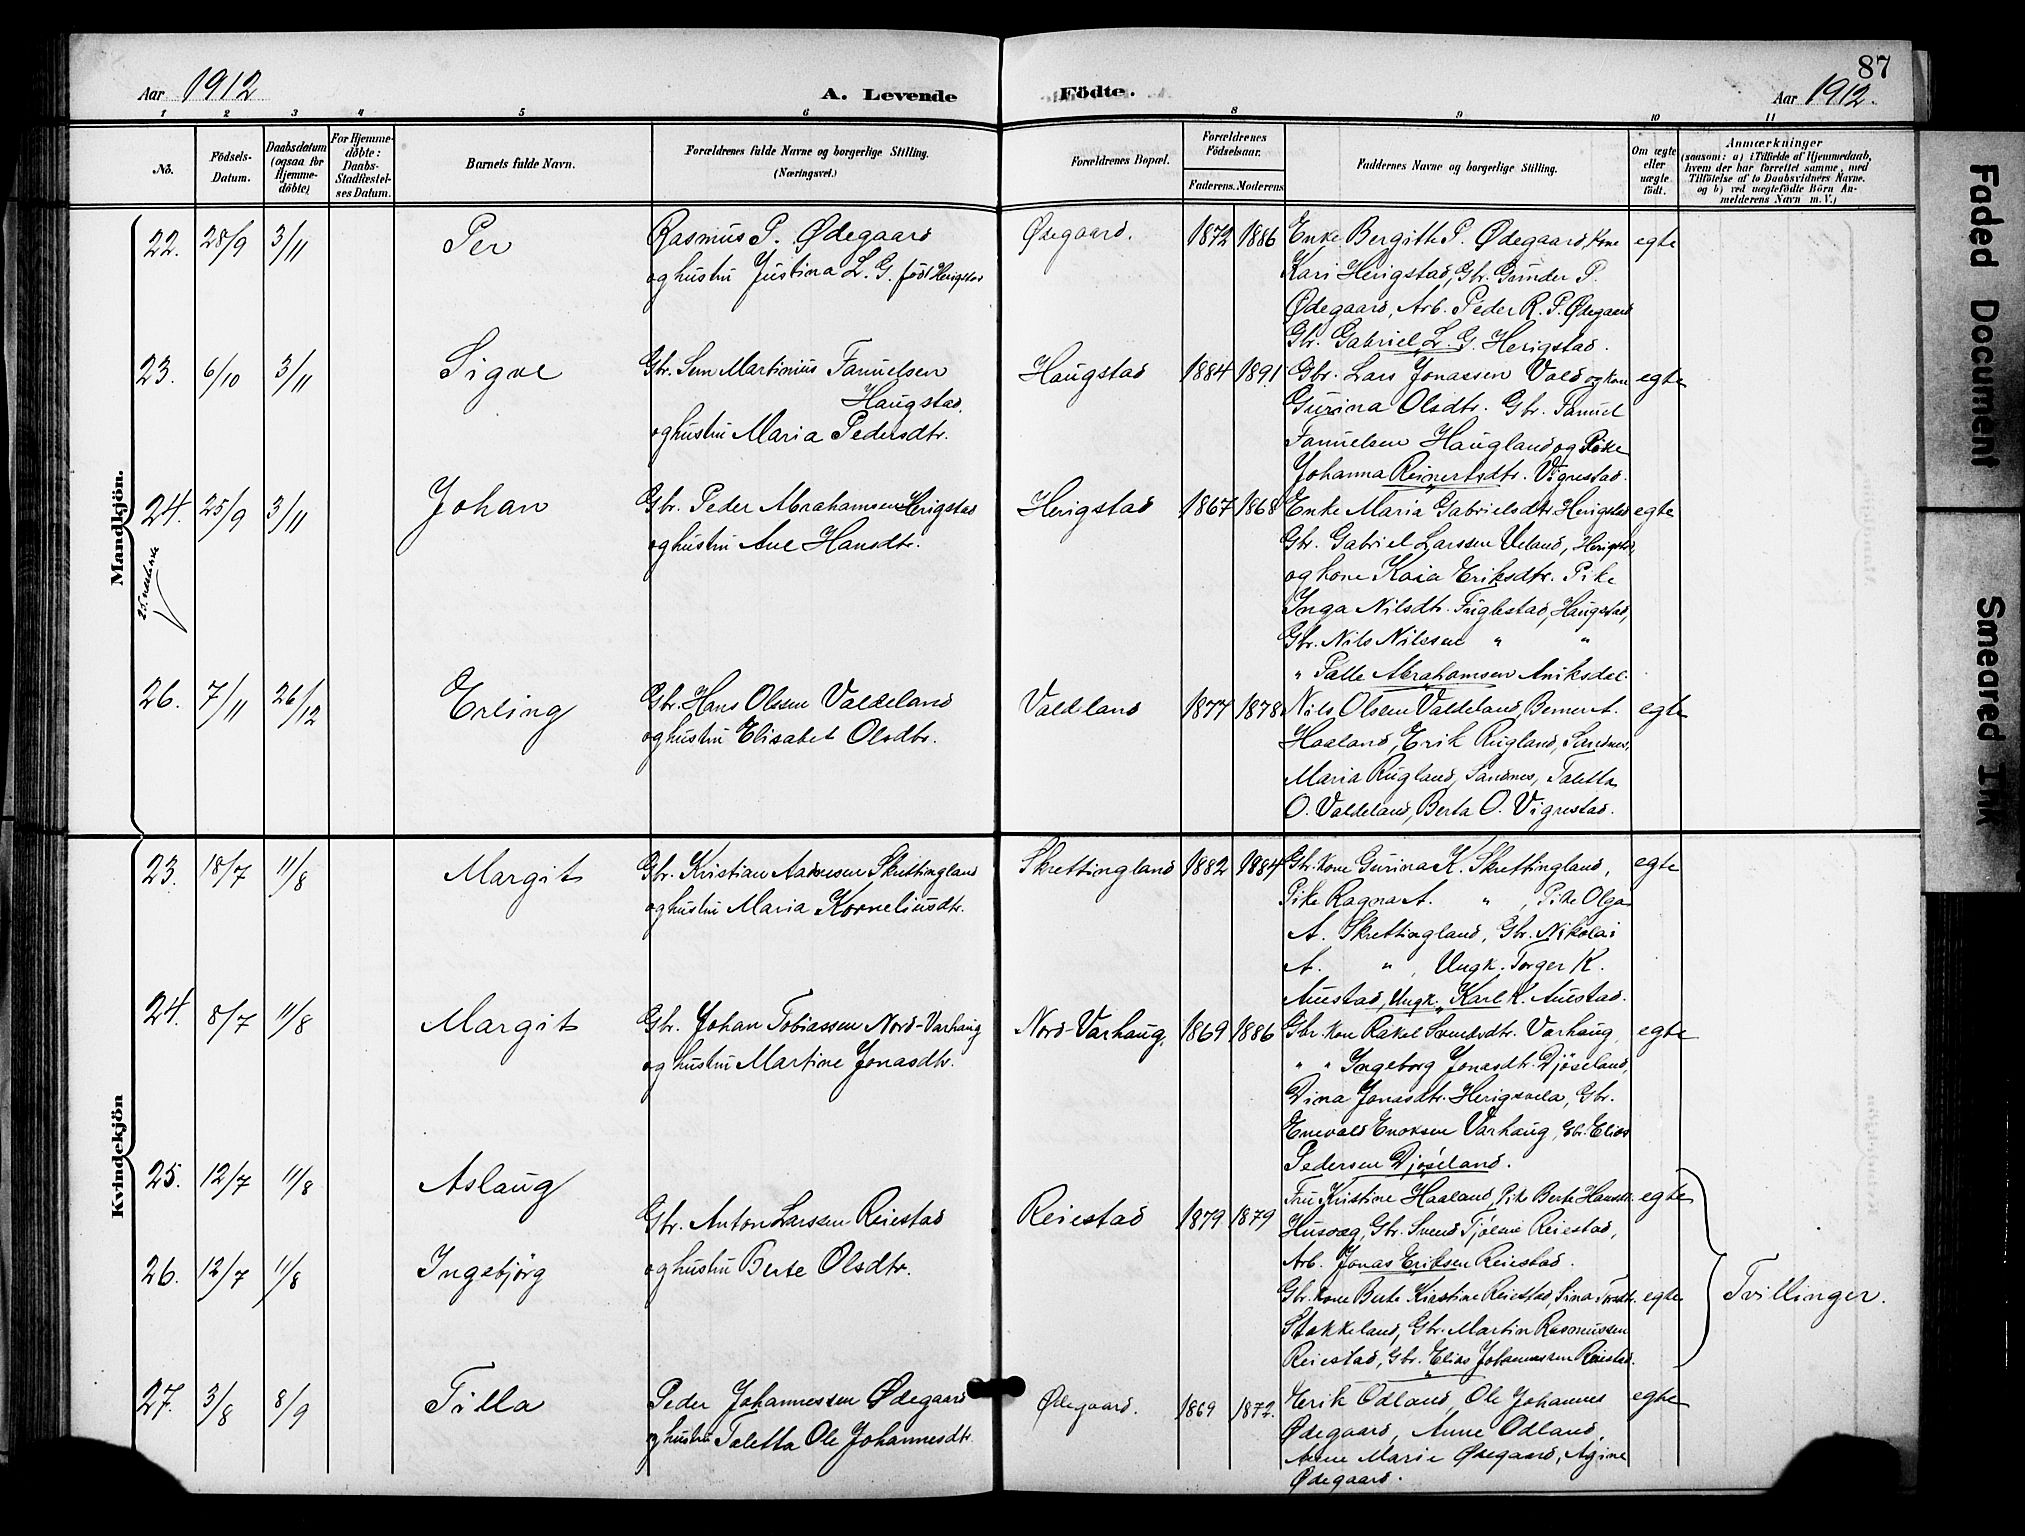 Aar 1912
A. Levende Födte.
87
Aar 1912.
1 2 3 4 5 6 8 9 10 11
No.
Födsels-Datum.
Daabsdatum (ogsaa for Hjemme-döbte)
For Hjemme-döbte: Daabs-Stadfæstel-ses Datum.
Barnets fulde Navn.
Forældrenes fulde Navne og borgerlige Stilling.
(Næringsvei.)
Forældrenes Bopæl.
Forældrenes Födselsaar.
Faderens. Moderens
Faddernes Navne og borgerlige Stilling.
Om ægte eller uægte födt.
Anmærkninger
(saasom: a) i Tilfælde af Hjemmedaab,
hvem der har forrettet samme, med
Tilföielse af to Daabsvidners Navne.
og b) ved uægtefödte Börn An-
melderens Navn m. V.)
Mandkjön.
22. 28/9 3/11 Per
Rasmus P. Ødegaard
og hustru Justina L. G. född Herigstad
Ødegaard. 1872 1886
Enke Bergitte P. Ødegaard, kone
Kari Herigstad, Gbr. Gunder P.
Ødegaard, Arb. Peder R. P. Ødegaard
Gbr. Gabriel L. G. Herigstad.
egte
23. 6/10 3/11 Sigve
Gbr. Sem Martinius Fanuelsen
Haugstad,
og hustru Maria Pedersdtr.
Haugstad 1884 1891
Gbr. Lars Jonassen Vold og kon
Gurina Olsdtr. Gbr. Fanuel
Fanuelsen Haugland og Pike
Johanna Reinertsdtr. Vigrestad.
egte
24. 25/9 3/11 Johan
Gbr. Peder Abrahamsen Herigstad
og hustru Ane Hansdtr.
Herigstad 1867 1868
Enke Maria Gabrielsdtr. Herigstad
Gbr. Gabriel Larssen Ueland, Herigstad,
og kone Kaia Eriksdtr. Pike
Inga Nilsdtr. Fuglestad, Haugstad,
Gbr. Nils Nilssen " "
" Palle Abrahamsen Aniksdal.
egte
26. 7/11 26/12 Erling
Gbr. Hans Olsen Valdeland
og hustru Elisabet Olsdtr.
Valdeland 1877 1878
Nils Olsen Valdeland, Berner A.
Haaland, Erik Rugland, Sandnes,
Maria Rugland, Sandnes, Taletta
O. Valdeland, Berta O. Vigrestad.
egte
Kvindekjön
23. 18/7 11/8 Margit
Gbr. Kristian Aadnesen Skrettingland
og hustru Maria Korneliusdtr.
Skrettingland 1882 1884
Gbr. kone Gurina K. Skrettingland,
Pike Ragna A. " , Pike Olga
A. Skrettingland, Gbr. Nikolai
A. " , Ungk. Torger K.
Auestad, Ungk. Karl K. Auestad.
egte
24. 8/7 11/8 Margit
Gbr. Johan Tobiassen Nord-Varhaug
og hustru Martine Jonasdtr.
Nord-Varhaug, 1869 1886
Gbr. kon Rakel Varhaug,
" " Ingeborg Jonasdtr. Djöseland,
Dina Jonasdtr. Herigsvela, Gbr.
Enevald Enoksen Varhaug, Gbr. Elias
Pedersen Djöseland.
egte
25. 12/7 11/8 Aslaug
Gbr. Anton Larssen Reiestad
Reiestad 1879 1879
Fru Kristine Haaland, Pike Berte Hansdtr.
Husvæg, Gbr. Svend Tjölme Reiestad,
Arb. Jonas Eriksen Reiestad.
egte
26. 12/7 11/8 Ingebjörg
og hustru Berte Olsdtr.
Gbr. kone Berte Kirstine Reiestad, Sina Tordtr.
Stokkeland, Gbr. Martin Rasmussen
Reiestad, Gbr. Elias Johannessen Reiestad.
egte
Tvillinger.
27. 3/8 8/9 Tilla
Peder Johannessen Ødegaard
og hustru Taletta Ole Johannesdtr.
Ødegaard. 1869 1872.
Erik Odland, Ole Johannes
Ødegaard, Anne Odland,
Anne Marie Ødegaard, Agine
Ødegaard.
egte
Faded Document
Smeared Ink